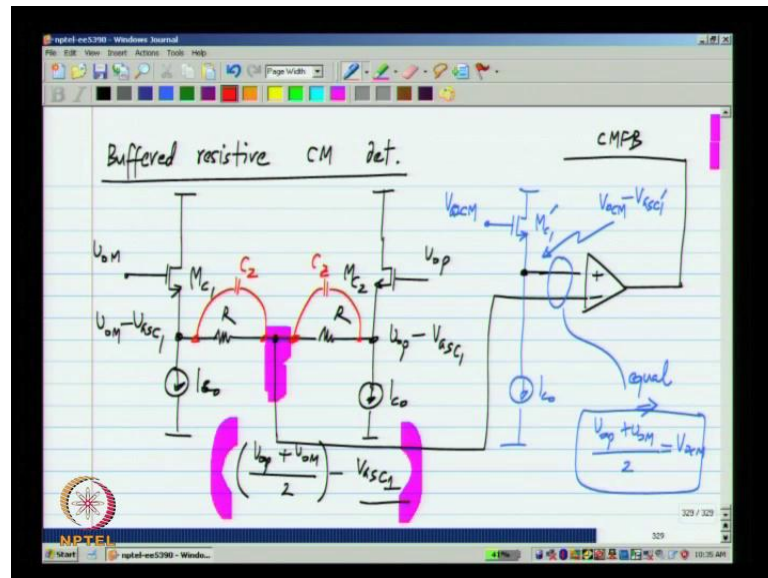 nptel-ee5390 - Windows Journal
File Edit View Insert Actions Tools Help
Page Width
B I
Buffered resistive CM det.
CMFB
VOCM
Mc1'
VOCM-VGSC1'
VOM
Mc1
C2
C2
Mc2
Vop
+
-
VOM-VGSC1
R
R
Vop-VGSC1
Ic0
Ic0
Ic0
equal
(Vop+VOM
2) - VGSC1
Vop+VOM
2 = VOCM
329 / 329
329
NPTEL
Start
nptel-ee5390 - Windo...
41%
10:35 AM